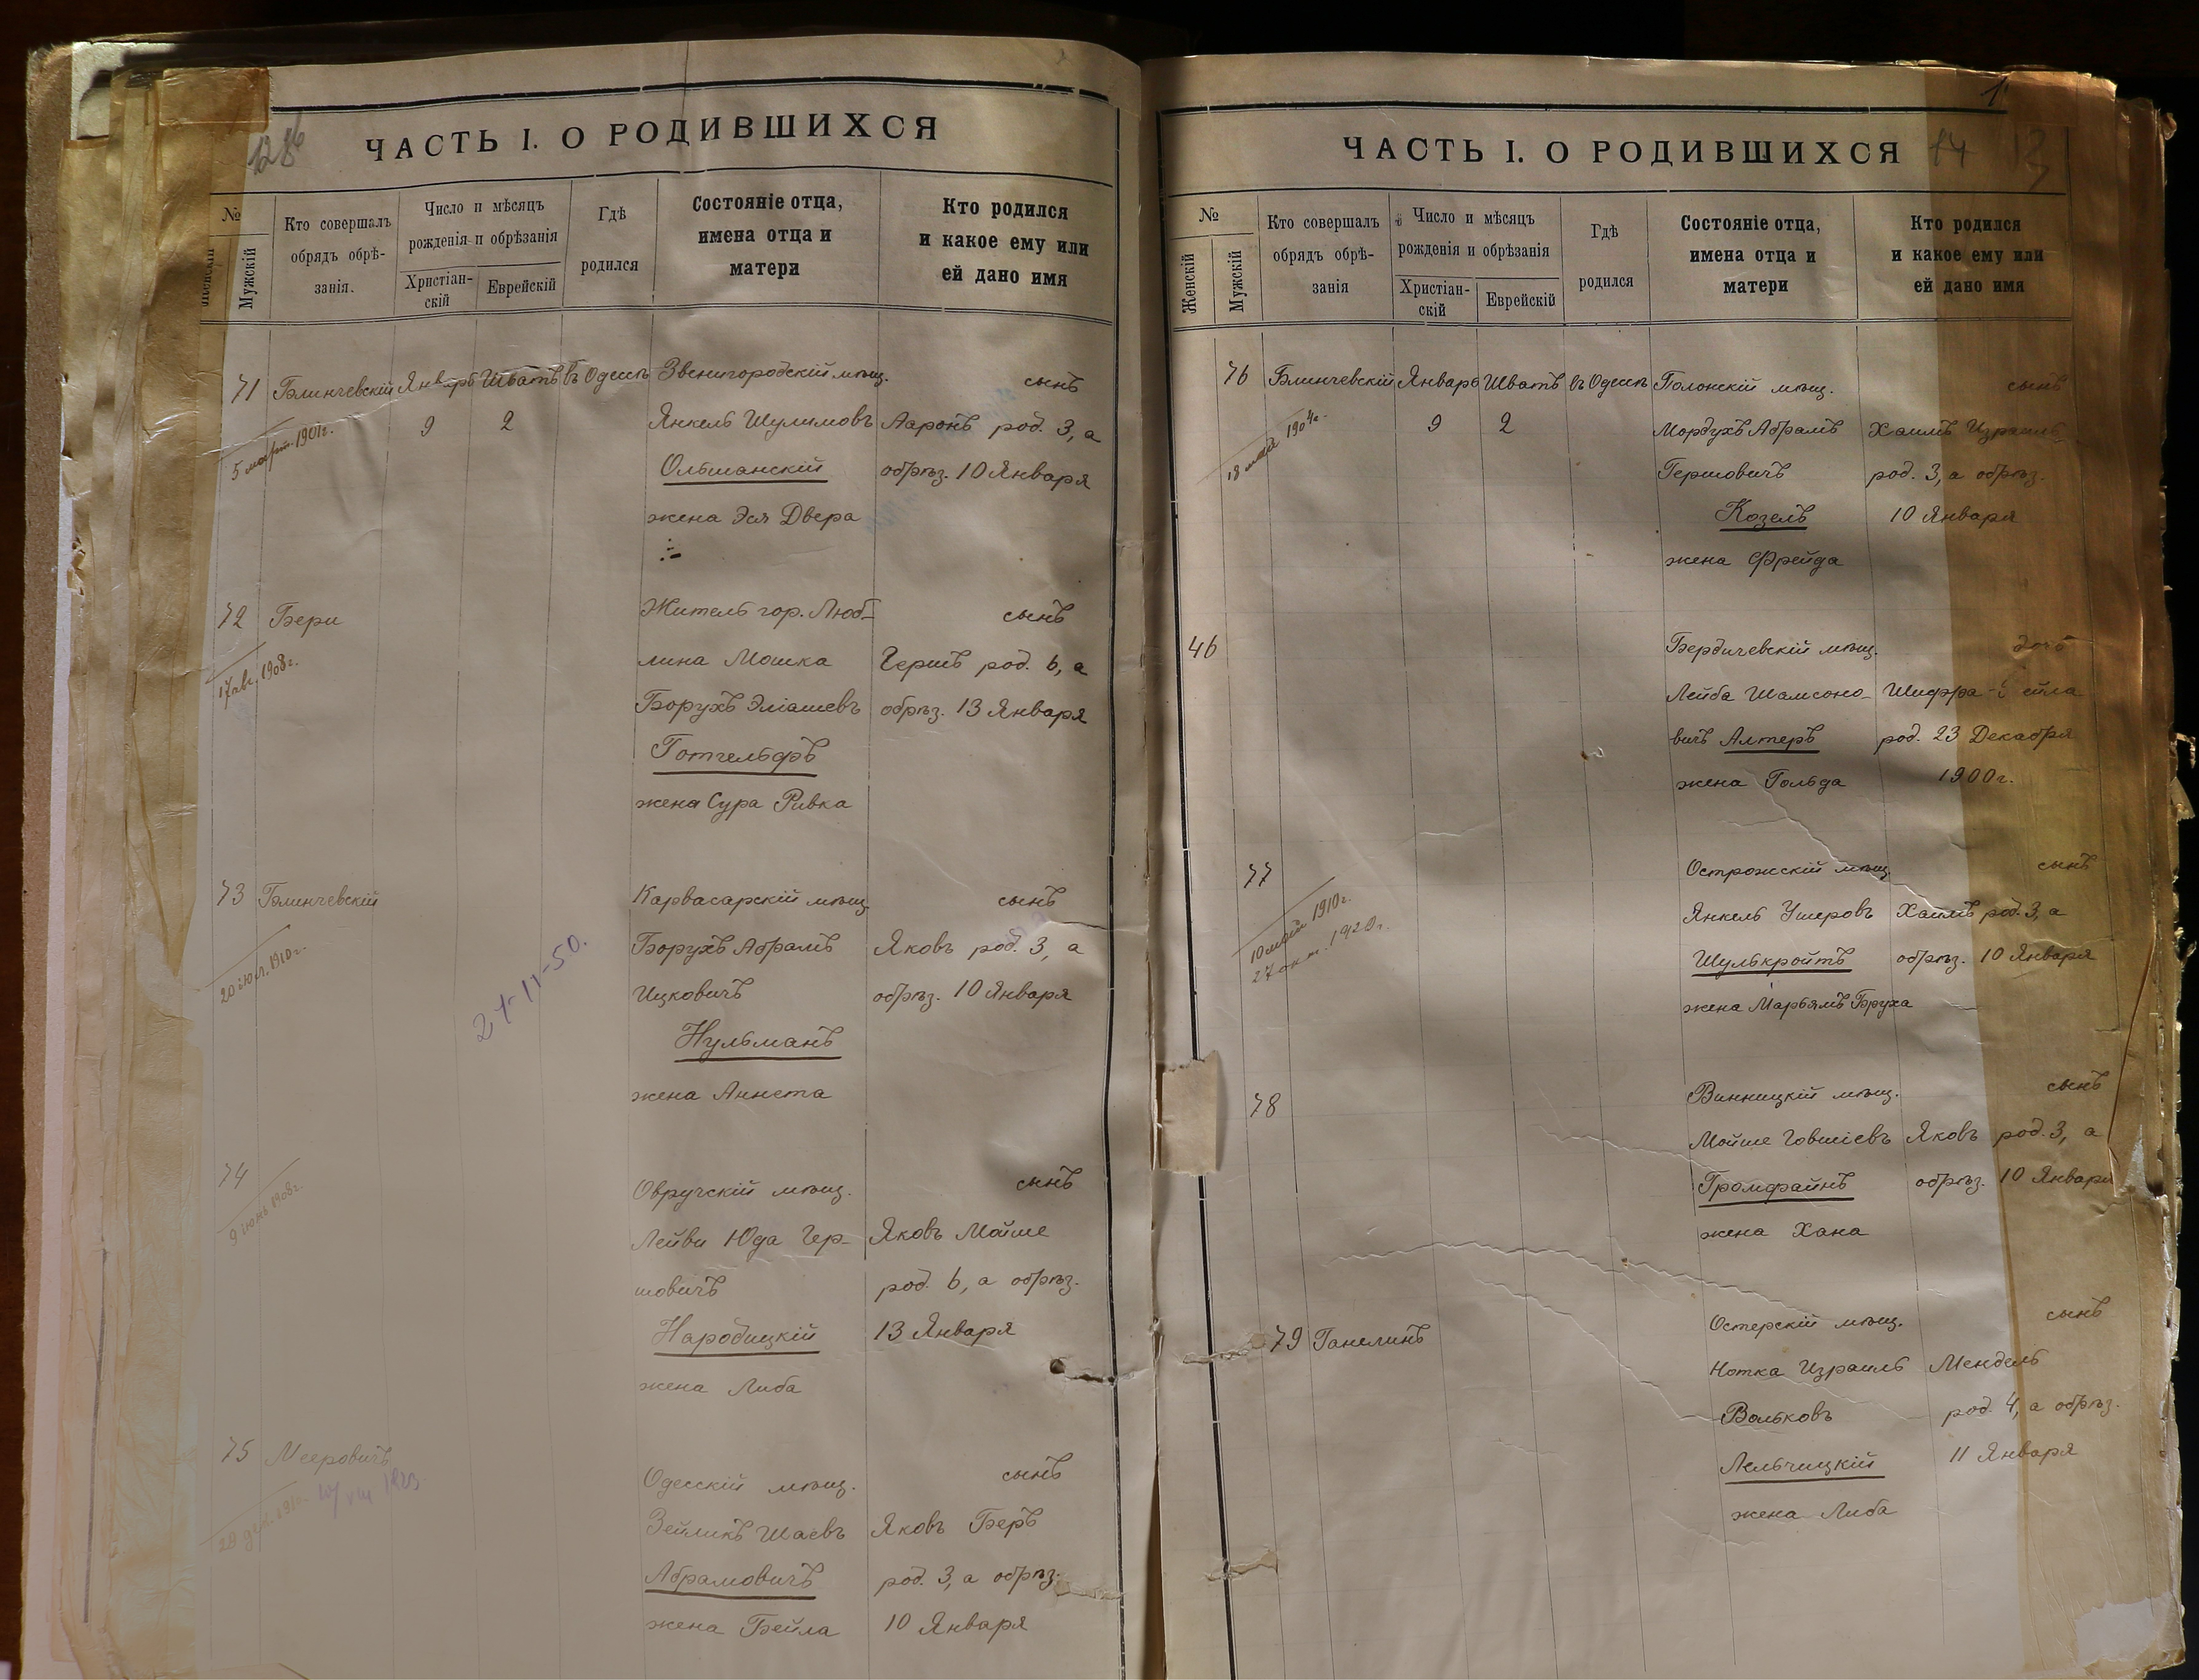 ЧАСТЬ I. О РОДИВШИХСЯ
№
Женскій
Мужскій
Кто совершалъ
обрядъ обрѣ-
занія.
Число и мѣсяцъ
рожденія и обрѣзанія
Христіан-
скій
Еврейскій
Гдѣ
родился
Состояніе отца,
имена отца и
матери
Кто родился
и какое ему или
ей дано имя
71 Блинчевскій Январь Шватъ въ Одессѣ Звенигородскій мѣщ. сынъ
5 март. 1901г. 9 2 Янкель Шулимовъ Ааронъ род. 3, а
Ольшанскій обрѣз. 10 Января
жена Эся Двера
72 Бери Житель гор. Люб- сынъ
17 авг. 1908г. лина Мошка Гершъ род. 6, а
Борухъ Эліашевъ обрѣз. 13 Января
Готгельфъ
жена Сура Ривка
73 Блинчевскій Карвасарскій мѣщ. сынъ
20 іюл. 1910г. 24-11-50. Борухъ Абрамъ Яковъ род. 3, а
Ицковичъ обрѣз. 10 Января
Нульманъ
жена Аннета
74 Овручскій мѣщ. сынъ
9 іюнь 1908г. Лейви Юда Гер- Яковъ Мойше
шовичъ род. 6, а обрѣз.
Народицкій 13 Января
жена Либа
75 Мееровичъ Одесскій мѣщ. сынъ
Зейликъ Шаевъ Яковъ Беръ
Абрамовичъ род. 3, а обрѣз.
жена Бейла 10 Января
1
14
ЧАСТЬ I. О РОДИВШИХСЯ
№
Женскій
Мужскій
Кто совершалъ
обрядъ обрѣ-
занія
Число и мѣсяцъ
рожденія и обрѣзанія
Христіан-
скій
Еврейскій
Гдѣ
родился
Состояніе отца,
имена отца и
матери
Кто родился
и какое ему или
ей дано имя
76 Блинчевскій Январь Шватъ въ Одессѣ Полонскій мѣщ. сынъ
18 май 1904г. 9 2 Мордухъ Абрамъ Хаимъ Израиль
Гершовичъ род. 3, а обрѣз.
Козелъ 10 Января
жена Фрейда
46 Бердичевскій мѣщ. дочь
Лейба Шамсоно- Шифра
вичъ Алтеръ род. 23 Декабря
жена Гольда 1900г.
77 Острожскій мѣщ. сынъ
10 май 1910г. Янкель Ушеровъ Хаимъ род. 3, а
27 окт. 1920г. Шулькройтъ обрѣз. 10 Января
жена Марьямъ Бруха
78 Винницкій мѣщ. сынъ
Мойше Говшіевъ Яковъ род. 3, а
Громфайнъ обрѣз. 10 Января
жена Хана
79 Ганелинъ Остерскій мѣщ. сынъ
Нотка Израиль Мендель
Вольковъ род. 4, а обрѣз.
Лельчицкій 11 Января
жена Либа